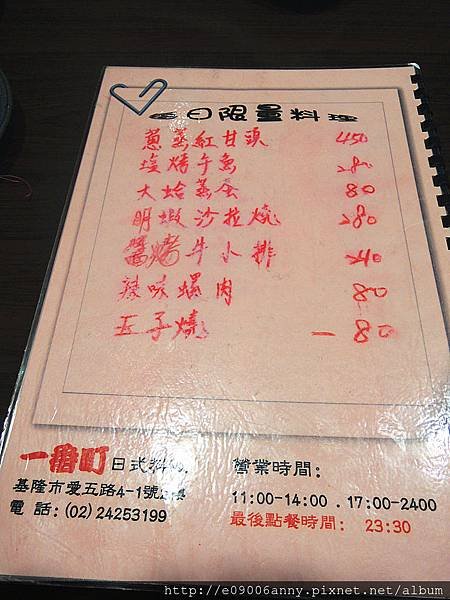 每日限量料理
蔥蒸紅甘頭 450
塩烤午魚 280
大蛤蒸蛋 80
明蝦沙拉燒 280
醬燒牛小排 240
辣味螺肉 80
玉子燒 — 80
一番町日式料理
營業時間:
基隆市愛五路4-1號2樓
11:00-14:00 . 17:00-2400
電話:(02)24253199
最後點餐時間: 23:30
http://e09006anny.pixnet.net/album